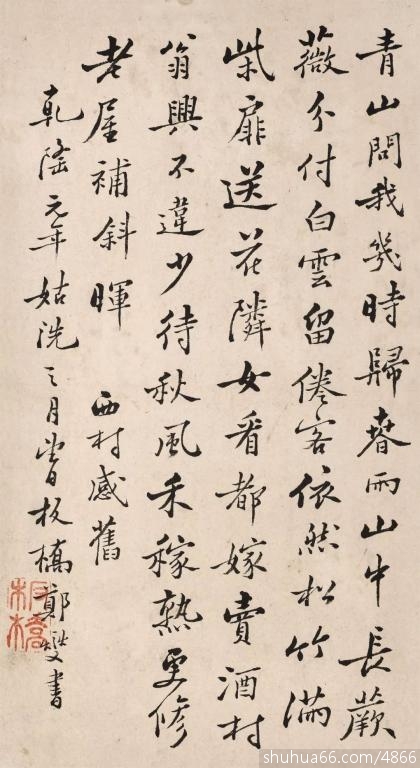 青山問我幾時歸春雨山中長蕨
薇分付白雲留倦客依然松竹滿
柴扉送花隣女看都嫁賣酒村
翁興不違少待秋風禾稼熟更修
老屋補斜暉 西村感舊
乾隆元年姑洗之月板橋鄭燮書
shuhua66.com/4866